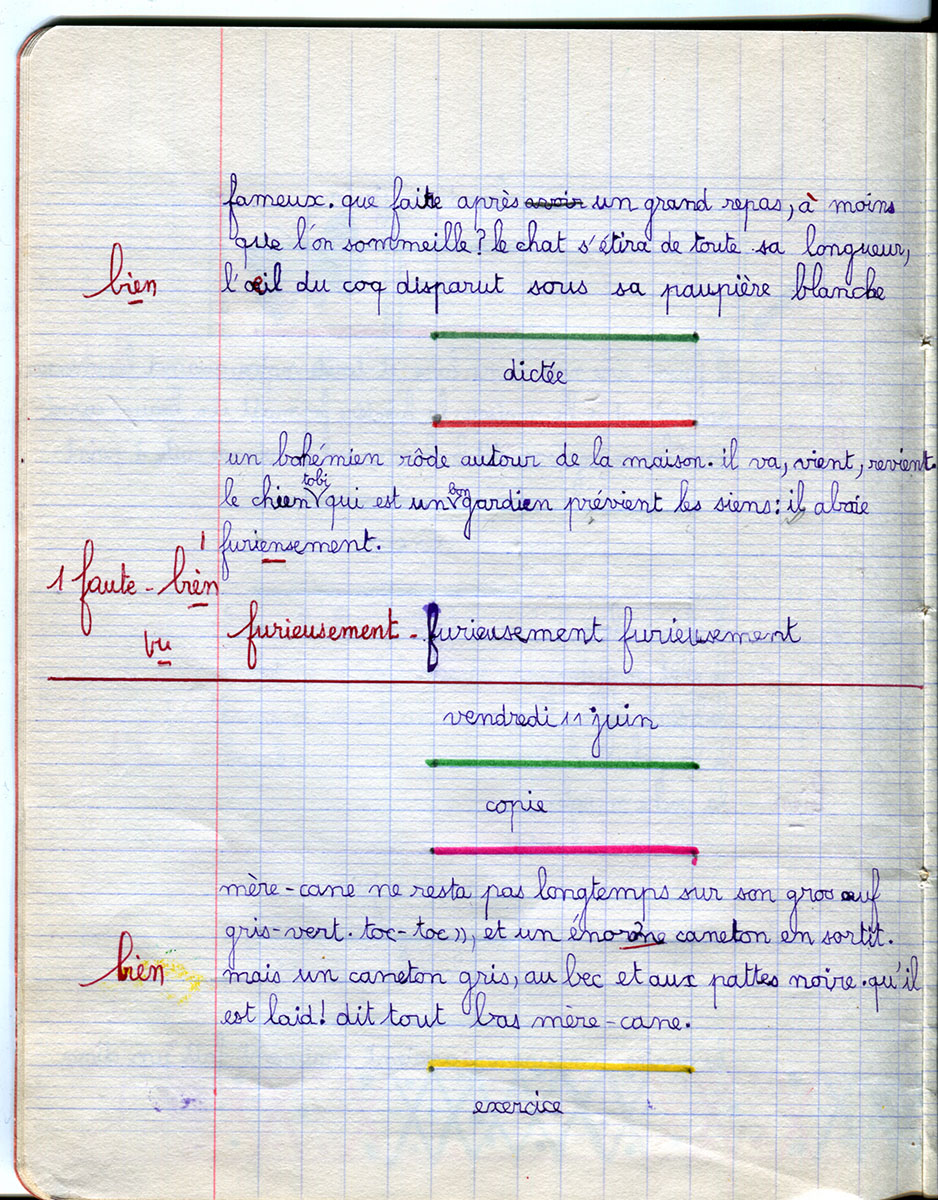 fameux. que faite après avoir un grand repas, à moins
que l'on sommeille? le chat s'étira de toute sa longueur,
bien
l'œil du coq disparut sous sa paupière blanche
dictée
un bohémien rôde autour de la maison. il va, vient, revient.
tobi bon
le chien qui est un gardien prévient les siens: il aboie
furiensement.
1 faute - bien
vu
furieusement - furieusement furieusement
vendredi 11 juin
copie
mère-cane ne resta pas longtemps sur son gros œuf
gris-vert. toc-toc », et un énorme caneton en sortit.
bien
mais un caneton gris, au bec et aux pattes noire. qu'il
est laid! dit tout bas mère-cane.
exercice